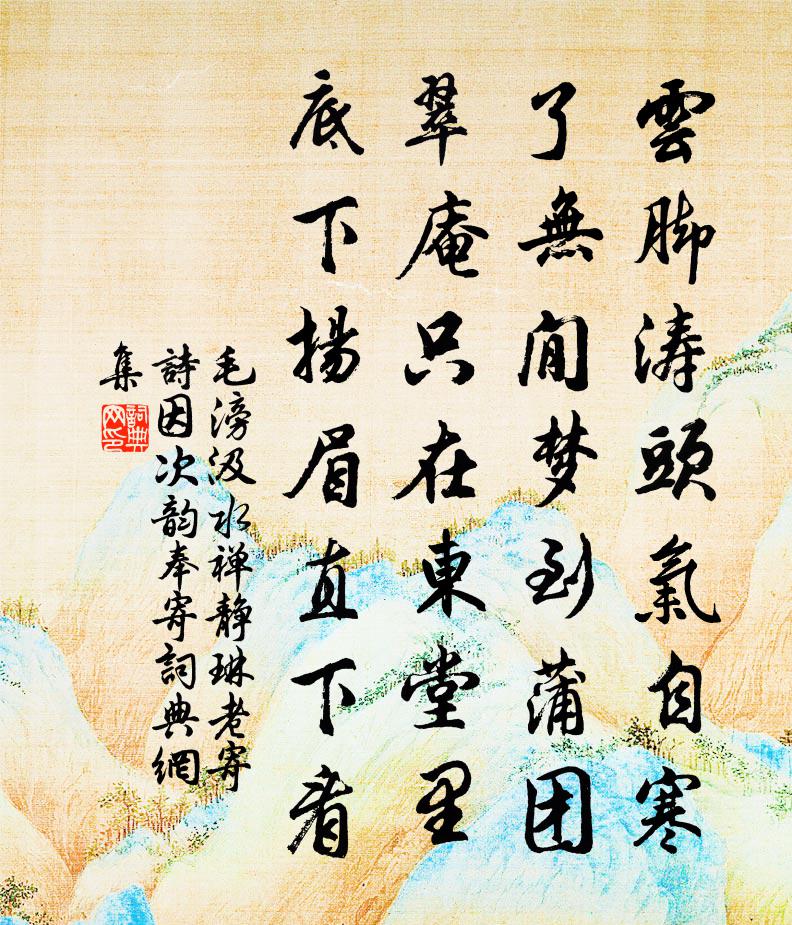 雲脚涛頭氣自寒
了無閒梦到蒲团
翠庵只在東堂里
底下揚眉直下看
毛滂汲水禅静琳老寄
詩因次韵奉寄詞典網
集
詞典
网印